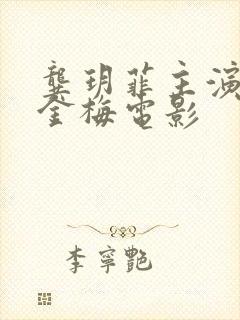 龚玥菲主演
金梅电影
李寧艷